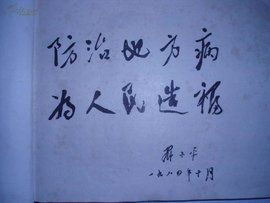 防治地方病
为人民造福
一九八〇年十月